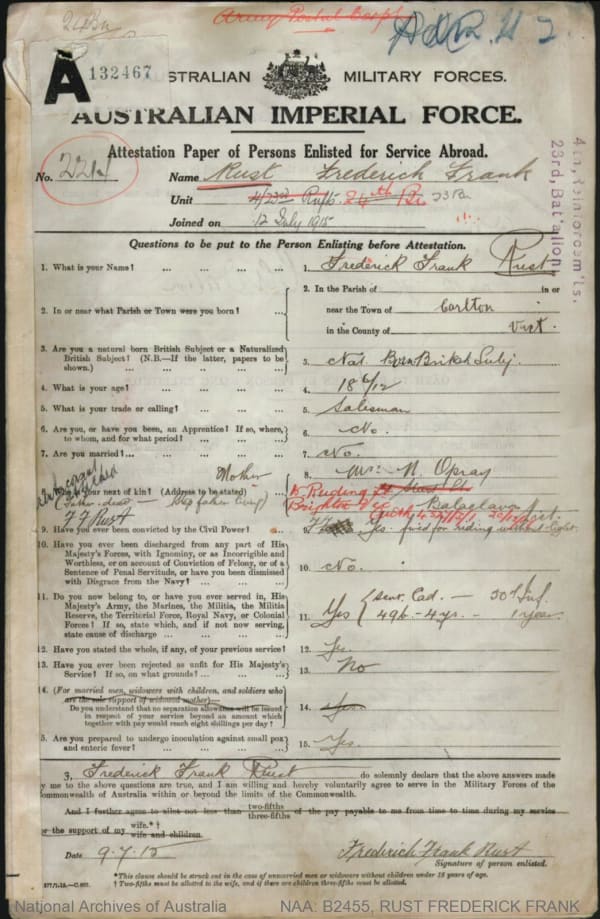 24 Bn
Army Postal Corps
A 132467
STRALIAN MILITARY FORCES.
AUSTRALIAN IMPERIAL FORCE.
Attestation Paper of Persons Enlisted for Service Abroad.
No. Name Rust Frederick Frank
Unit 4/23rd Rfts. 24th Bn 23 Bn
Joined on 12 July 1915
4th Reinforcem'ts.
23rd, Battalion
Questions to be put to the Person Enlisting before Attestation.
1. What is your Name? ... ... ... ... 1. Frederick Frank Rust
2. In or near what Parish or Town were you born? ... 2. In the Parish of in or
near the Town of Carlton
in the County of Vict.
3. Are you a natural born British Subject or a Naturalized
British Subject? (N.B.—If the latter, papers to be
shown.) ... ... ... ... 3. Nat Born British Subj.
4. What is your age? ... ... ... ... 4. 18 6/12
5. What is your trade or calling? ... ... ... 5. Salesman
6. Are you, or have you been, an Apprentice? If so, where,
to whom, and for what period? ... ... ... 6. No.
7. Are you married? ... ... ... ... 7. No.
Mother 8. Mrs. N. Opray
your next of kin? (Address to be stated)
(Father dead — Step father living)
Brighton Vic Balaclava
F F Rust
9. Have you ever been convicted by the Civil Power? 9. Yes. fined for riding without light.
10. Have you ever been discharged from any part of His
Majesty's Forces, with Ignominy, or as Incorrigible and
Worthless, or on account of Conviction of Felony, or of a
Sentence of Penal Servitude, or have you been dismissed
with Disgrace from the Navy? ... ... ... 10. No.
11. Do you now belong to, or have you ever served in, His
Majesty's Army, the Marines, the Militia, the Militia
Reserve, the Territorial Force, Royal Navy, or Colonial
Forces? If so, state which, and if not now serving,
state cause of discharge ... ... ... 11. Yes { Senr. Cad. — 50th Inf.
49b - 4 yrs. - 1 year.
12. Have you stated the whole, if any, of your previous service? 12. Yes.
13. Have you ever been rejected as unfit for His Majesty's
Service? If so, on what grounds? ... ... ... 13. No
14. (For married men, widowers with children, and soldiers who
are the sole support of widowed mother)—
Do you understand that no separation allowance will be issued
in respect of your service beyond an amount which
together with pay would reach eight shillings per day? 14. Yes
15. Are you prepared to undergo inoculation against small pox
and enteric fever? ... ... ... ... 15. Yes.
I, Frederick Frank Rust do solemnly declare that the above answers made
by me to the above questions are true, and I am willing and hereby voluntarily agree to serve in the Military Forces of the
Commonwealth of Australia within or beyond the limits of the Commonwealth.
And I further agree to allot not less than two-fifths three-fifths of the pay payable to me from time to time during my service
for the support of my wife.*† wife and children.
Date 9.7.15 Frederick Frank Rust
Signature of person enlisted.
*This clause should be struck out in the case of unmarried men or widowers without children under 18 years of age.
† Two-fifths must be allotted to the wife, and if there are children three-fifths must be allotted.
National Archives of Australia NAA: B2455, RUST FREDERICK FRANK